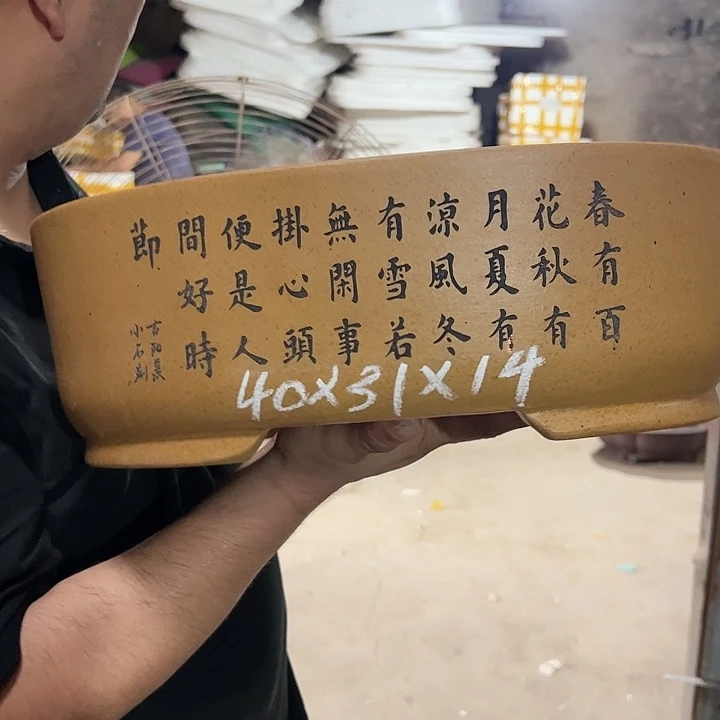 春有百
花秋有
月夏有
涼風冬
有雪若
無閑事
掛心頭
便是人
間好時
節
小石刻
40X31X14